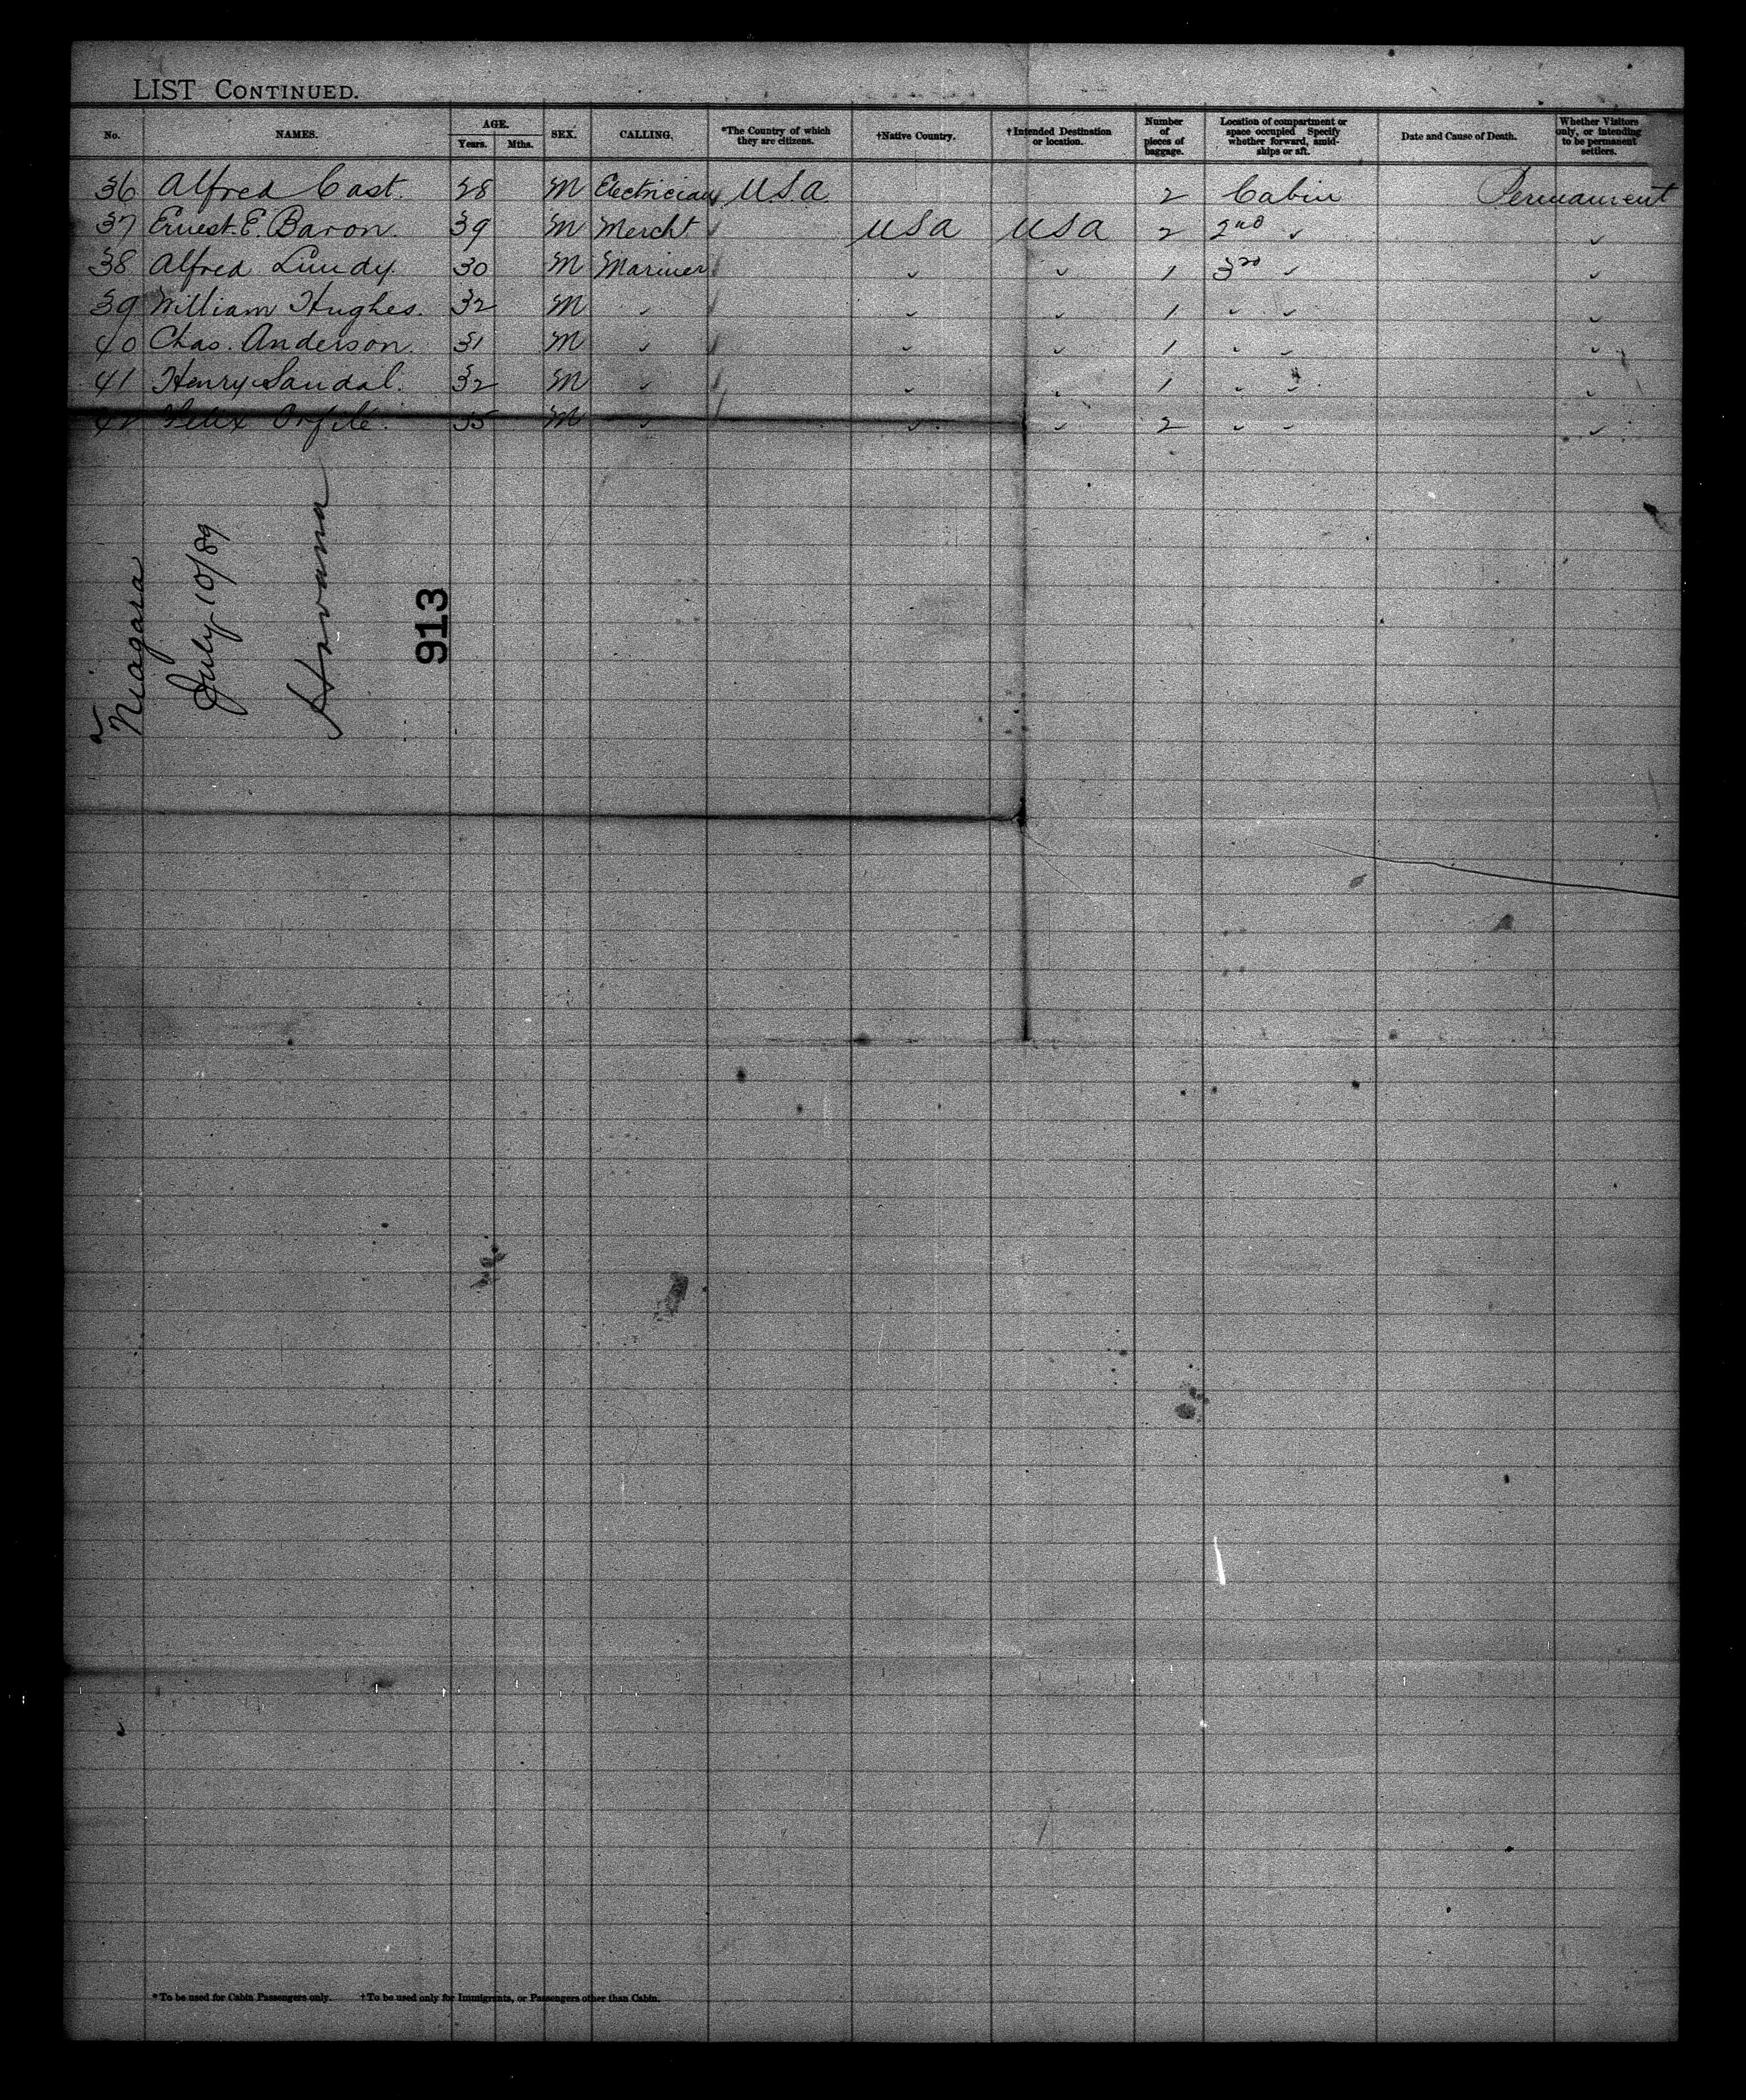 LIST CONTINUED.
No. NAMES. AGE. Years. Mths. SEX. CALLING. *The Country of which they are citizens. †Native Country. †Intended Destination or location. Number of pieces of baggage. Location of compartment or space occupied Specify whether forward, amid-ships or aft. Date and Cause of Death. Whether Visitors only, or intending to be permanent settlers.
36 Alfred Cast. 28 M Electrician USA 2 Cabin Permanent
37 Ernest E. Baron. 39 M Mercht USA USA 2 2nd " "
38 Alfred Lundy. 30 M Mariner " " 1 3rd " "
39 William Hughes. 32 M " " " 1 " " "
40 Chas. Anderson. 31 M " " " 1 " " "
41 Henry Sandal. 32 M " " " 1 " " "
42 Felix Orfile. 35 M " " " 2 " " "
Niagara
July 10/89
Havana
913
*To be used for Cabin Passengers only. †To be used only for Immigrants, or Passengers other than Cabin.